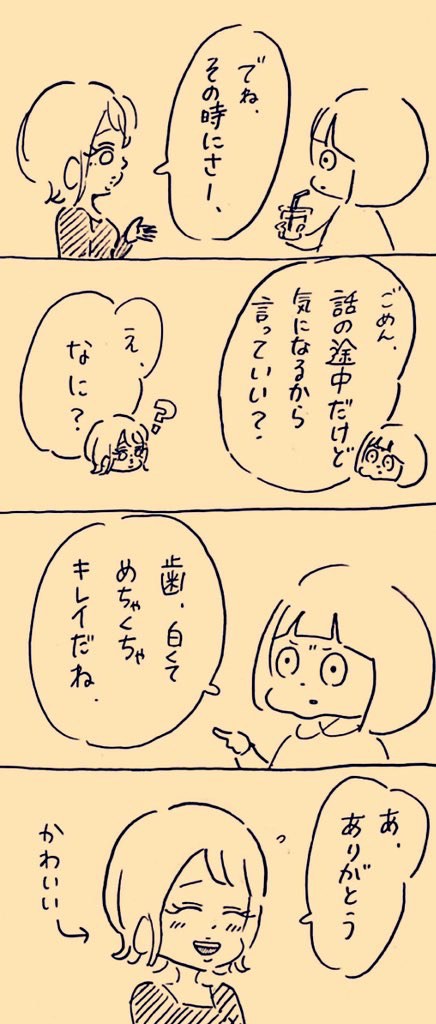 でね、
その時にさー、
ごめん、
話の途中だけど
気になるから
言っていい？
え、
なに？
歯、白くて
めちゃくちゃ
キレイだね、
あ、
ありがとう
かわいい